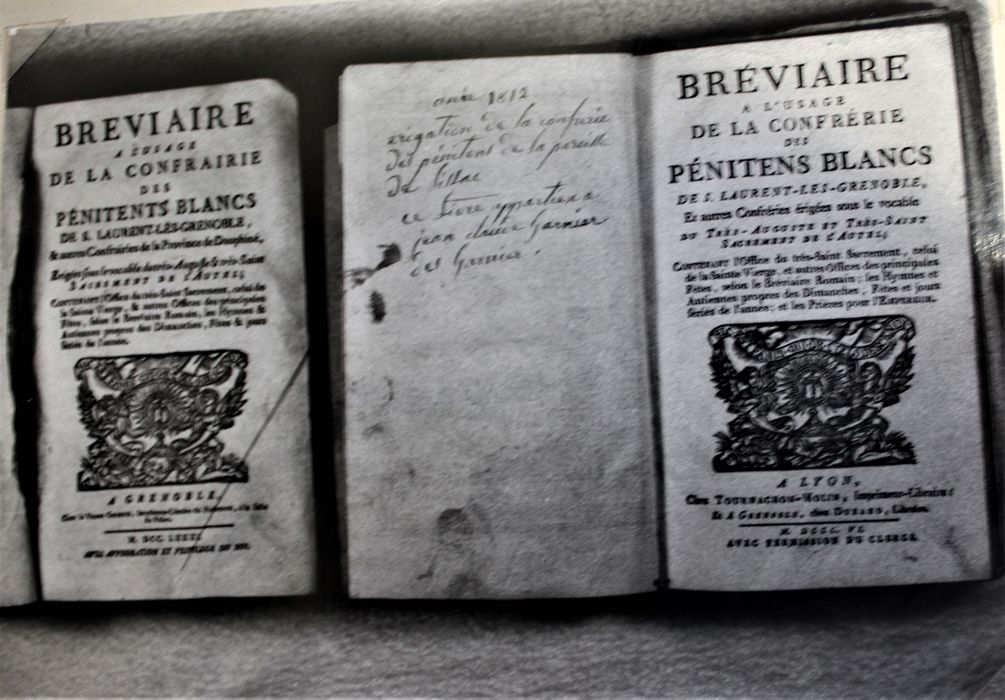 BREVIAIRE
A L'USAGE
DE LA CONFRAIRIE
DES
PÉNITENTS BLANCS
DE S. LAURENT-LÈS-GRENOBLE,
& autres Confrairies de la Province de Dauphiné,
Erigées sous le vocable du très-Auguste & très-Saint
SACREMENT DE L'AUTEL;
CONTENANT l'Office du très-Saint Sacrement, celui de
la Sainte Vierge, & autres Offices des principales
Fêtes, selon le Breviaire Romain, les Hymnes &
Antiennes propres des Dimanches, Fêtes & jours
fériés de l'année.
A GRENOBLE,
M. DCC. LXXXI.
AVEC APPROBATION ET PRIVILEGE DU ROI.
année 1812
erigation de la confrerie
des pénitens de la paroisse
de
ce livre appartien a
jean claude Garnier
des Garnier.
BRÉVIAIRE
A L'USAGE
DE LA CONFRÉRIE
DES
PÉNITENS BLANCS
DE S. LAURENT-LES-GRENOBLE,
Et autres Confréries érigées sous le vocable
DU TRÈS-AUGUSTE ET TRÈS-SAINT
SACREMENT DE L'AUTEL;
CONTENANT l'Office du très-Saint Sacrement, celui
de la Sainte Vierge, et autres Offices des principales
Fêtes, selon le Bréviaire Romain; les Hymnes et
Antiennes propres des Dimanches, Fêtes et jours
fériés de l'année; et les Prières pour l'EMPEREUR.
A LYON,
Chez TOURNACHON-MOLIN, Imprimeur-Libraire;
Et A GRENOBLE, chez DURAND, Libraire.
M. DCCC. VI.
AVEC PERMISSION DU CLERGÉ.